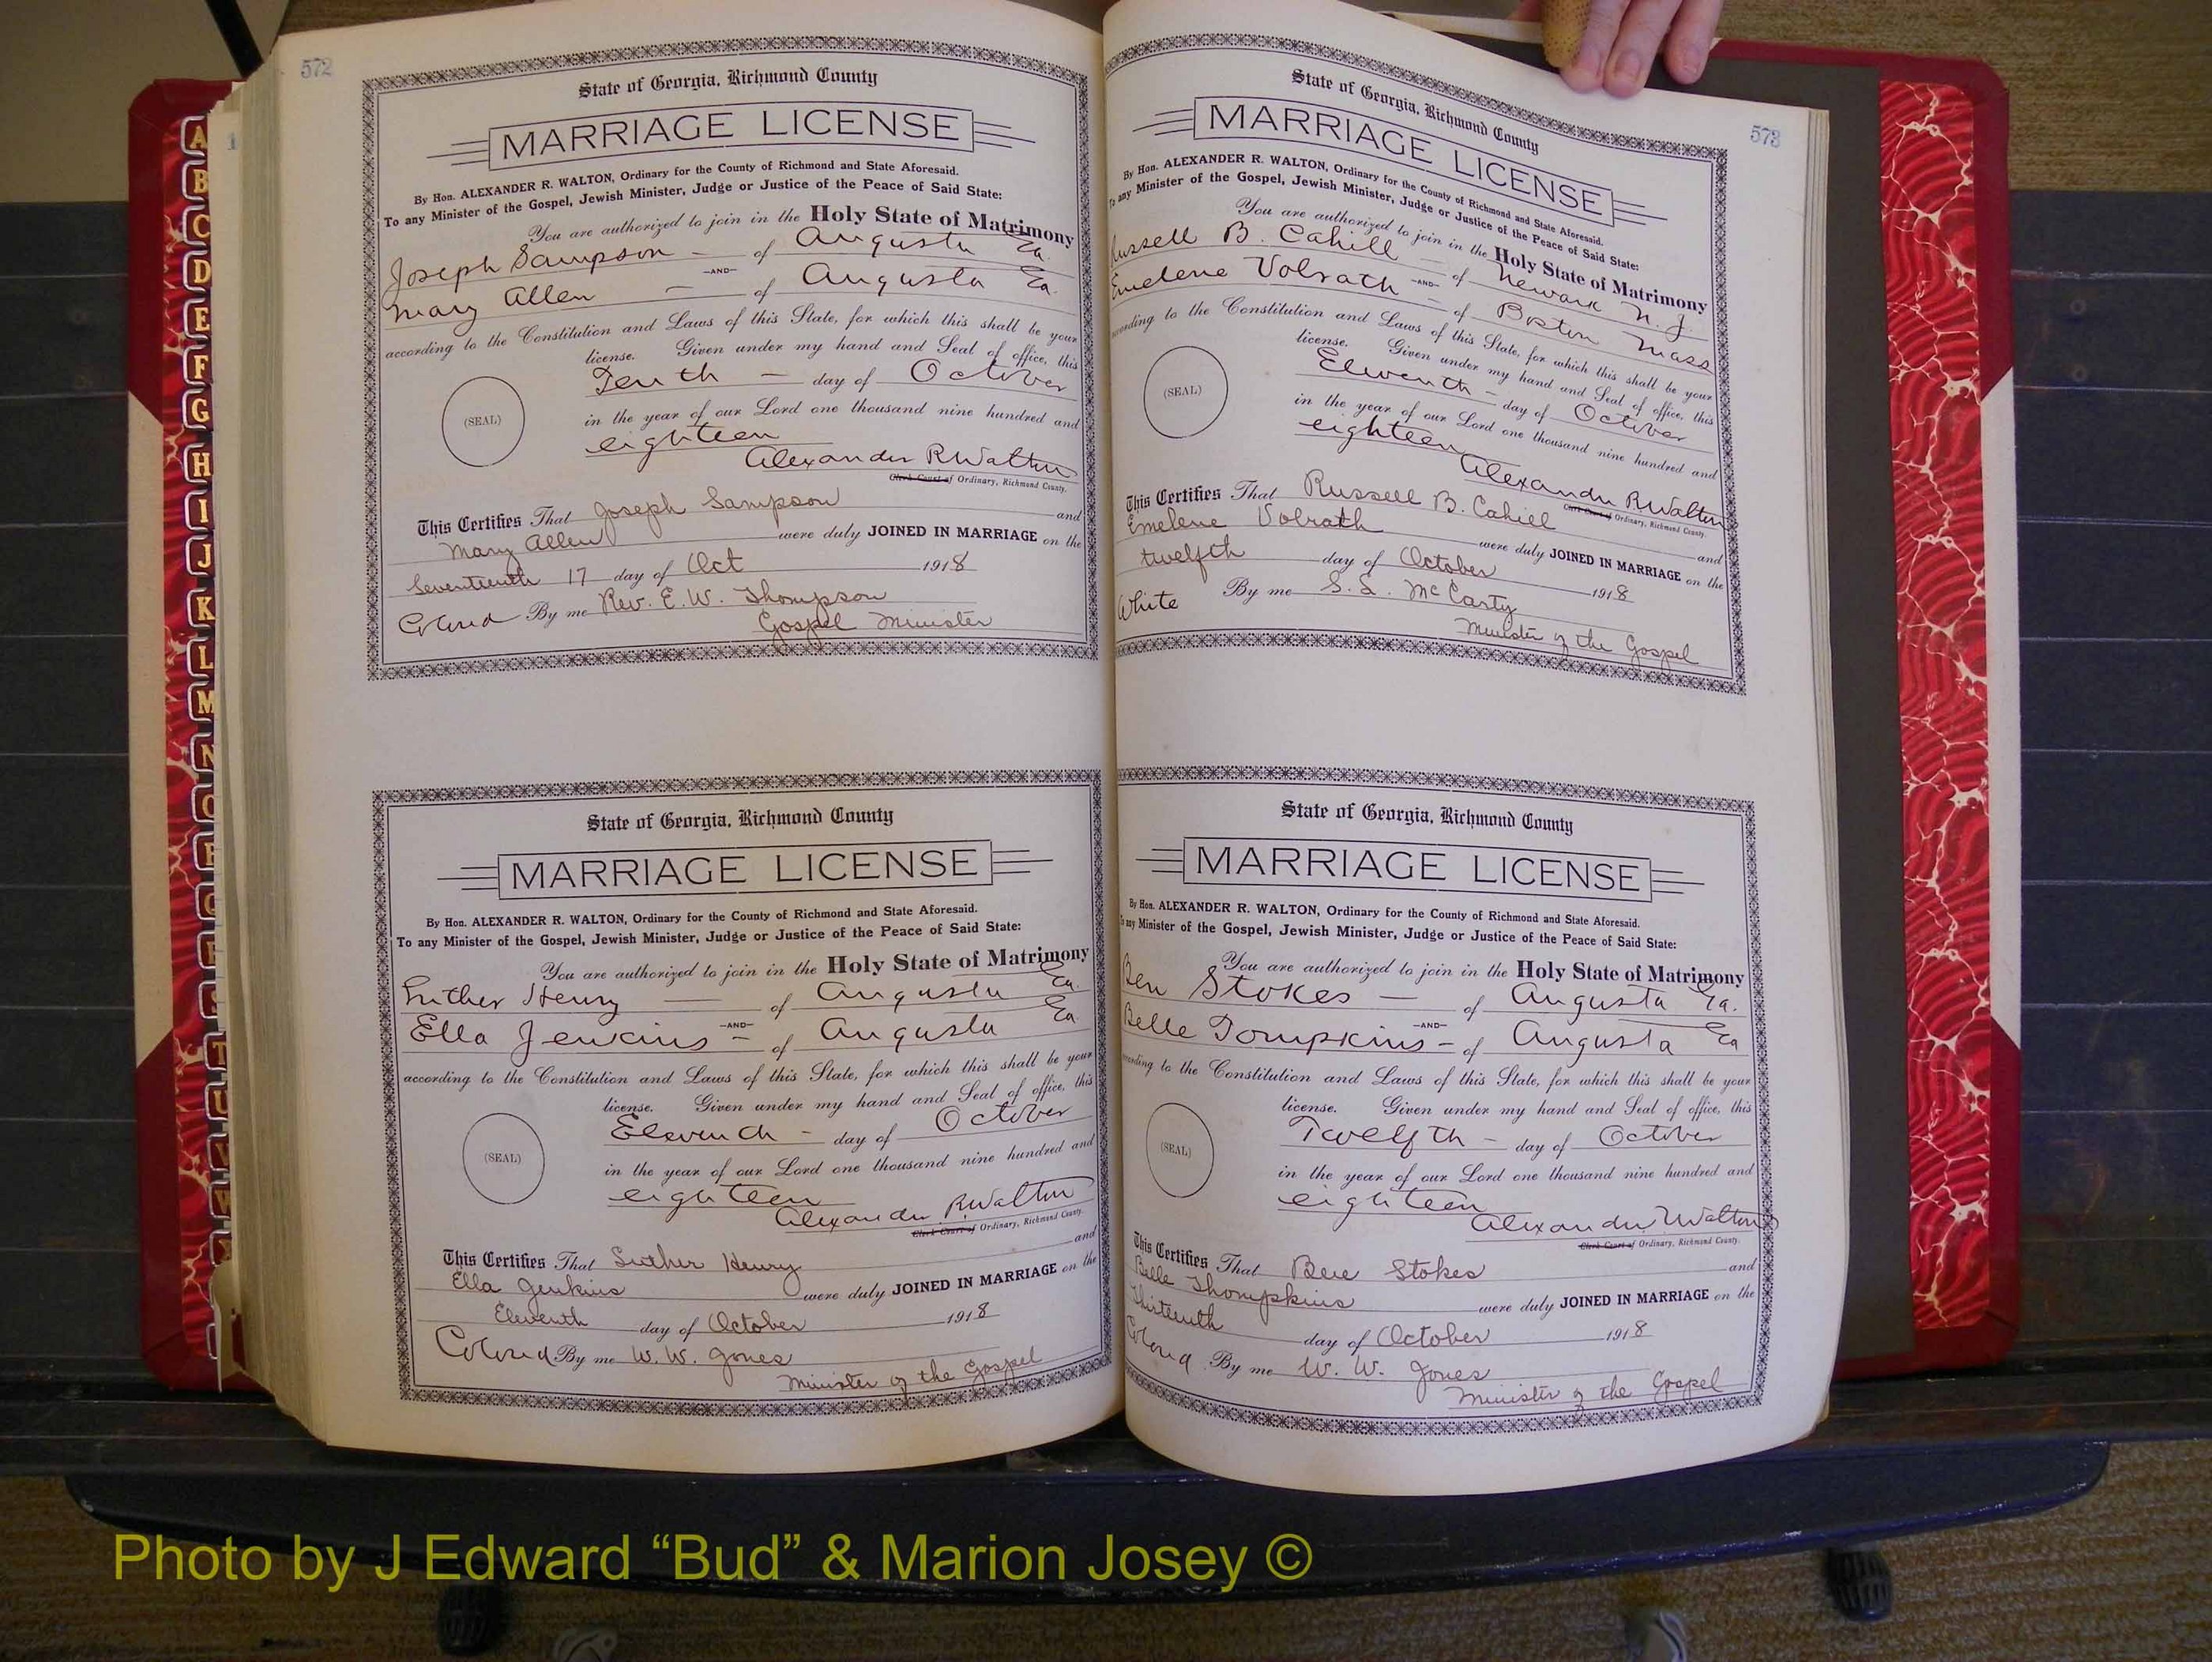 572
State of Georgia, Richmond County
MARRIAGE LICENSE
By Hon. ALEXANDER R. WALTON, Ordinary for the County of Richmond and State Aforesaid.
To any Minister of the Gospel, Jewish Minister, Judge or Justice of the Peace of Said State:
You are authorized to join in the Holy State of Matrimony
Joseph Sampson - of Augusta Ga.
—AND—
Mary Allen - of Augusta Ga.
according to the Constitution and Laws of this State, for which this shall be your
license. Given under my hand and Seal of office, this
Tenth - day of October
(SEAL) in the year of our Lord one thousand nine hundred and
eighteen
Alexander R Walton
Clerk Court of Ordinary, Richmond County.
This Certifies That Joseph Sampson and
Mary Allen were duly JOINED IN MARRIAGE on the
Seventeenth 17 day of Oct 1918
Colored By me Rev. E. W. Thompson
Gospel Minister
State of Georgia, Richmond County
MARRIAGE LICENSE
By Hon. ALEXANDER R. WALTON, Ordinary for the County of Richmond and State Aforesaid.
To any Minister of the Gospel, Jewish Minister, Judge or Justice of the Peace of Said State:
You are authorized to join in the Holy State of Matrimony
Luther Henry — of Augusta Ga.
—AND—
Ella Jenkins - of Augusta Ga
according to the Constitution and Laws of this State, for which this shall be your
license. Given under my hand and Seal of office, this
Eleventh - day of October
(SEAL) in the year of our Lord one thousand nine hundred and
eighteen
Alexander R Walton
Clerk Court of Ordinary, Richmond County.
This Certifies That Luther Henry and
Ella Jenkins were duly JOINED IN MARRIAGE on the
Eleventh day of October 1918
Colored By me W. W. Jones
Minister of the Gospel
573
State of Georgia, Richmond County
MARRIAGE LICENSE
By Hon. ALEXANDER R. WALTON, Ordinary for the County of Richmond and State Aforesaid.
To any Minister of the Gospel, Jewish Minister, Judge or Justice of the Peace of Said State:
You are authorized to join in the Holy State of Matrimony
Russell B. Cahill — of Newark N. J.
—AND—
Emelene Volrath - of Boston Mass
according to the Constitution and Laws of this State, for which this shall be your
license. Given under my hand and Seal of office, this
Eleventh - day of October
(SEAL) in the year of our Lord one thousand nine hundred and
eighteen
Alexander R Walton
Clerk Court of Ordinary, Richmond County.
This Certifies That Russell B. Cahill and
Emelene Volrath were duly JOINED IN MARRIAGE on the
twelfth day of October 1918
White By me S. L. McCarty
Minister of the Gospel
State of Georgia, Richmond County
MARRIAGE LICENSE
By Hon. ALEXANDER R. WALTON, Ordinary for the County of Richmond and State Aforesaid.
To any Minister of the Gospel, Jewish Minister, Judge or Justice of the Peace of Said State:
You are authorized to join in the Holy State of Matrimony
Ben Stokes — of Augusta Ga.
—AND—
Belle Tompkins - of Augusta Ga
according to the Constitution and Laws of this State, for which this shall be your
license. Given under my hand and Seal of office, this
Twelfth - day of October
(SEAL) in the year of our Lord one thousand nine hundred and
eighteen
Alexander R Walton
Clerk Court of Ordinary, Richmond County.
This Certifies That Ben Stokes and
Belle Thompkins were duly JOINED IN MARRIAGE on the
thirteenth day of October 1918
Colored By me W. W. Jones
Minister of the Gospel
A
B
C
D
E
F
G
H
I
J
K
L
M
N
O
P
Q
R
S
T
U
V
W
Photo by J Edward “Bud” & Marion Josey ©